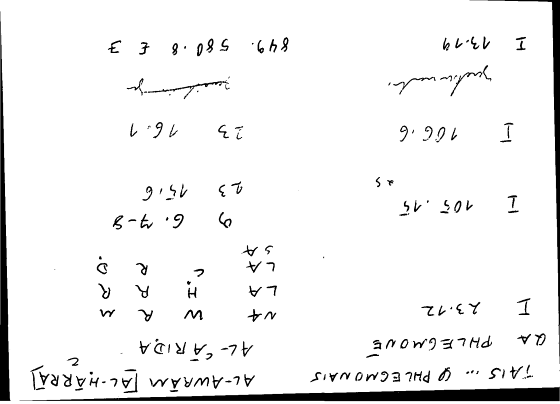 TAIS ... Q PHLEGMONAIS AL-AWRĀM [AL-ḤĀRRA]
QA PHLEGMONĒ AL-ʿĀRIḌA
I 23.12 NA W R M
LA Ḥ R R
LA C R Ḍ
SA
9 6.7-8
I 105.15 23 15.6
I 106.6 23 16.1
I 13.19 849. 580.8 £ 3